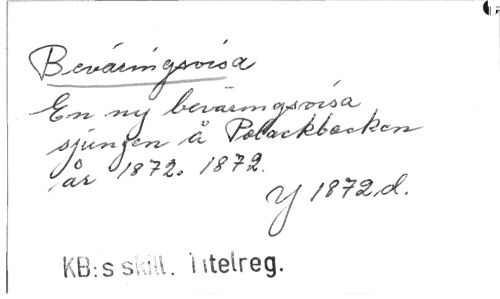 Beväringsvisa
En ny beväringsvisa
sjungen å Polackbacken
år 1872. 1872.
Y 1872 d.
KB:s skill. Titelreg.